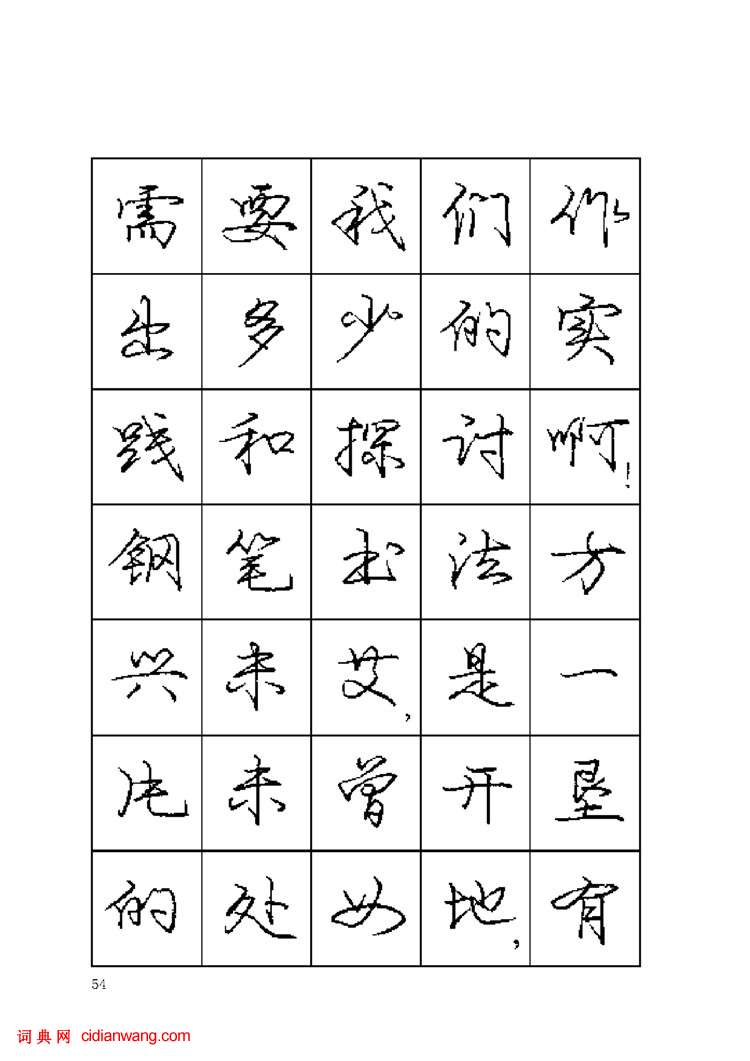 需要我们作
出多少的实
践和探讨啊!
钢笔书法方
兴未艾,是一
片未曾开垦
的处女地,有
54
词典网 cidianwang.com